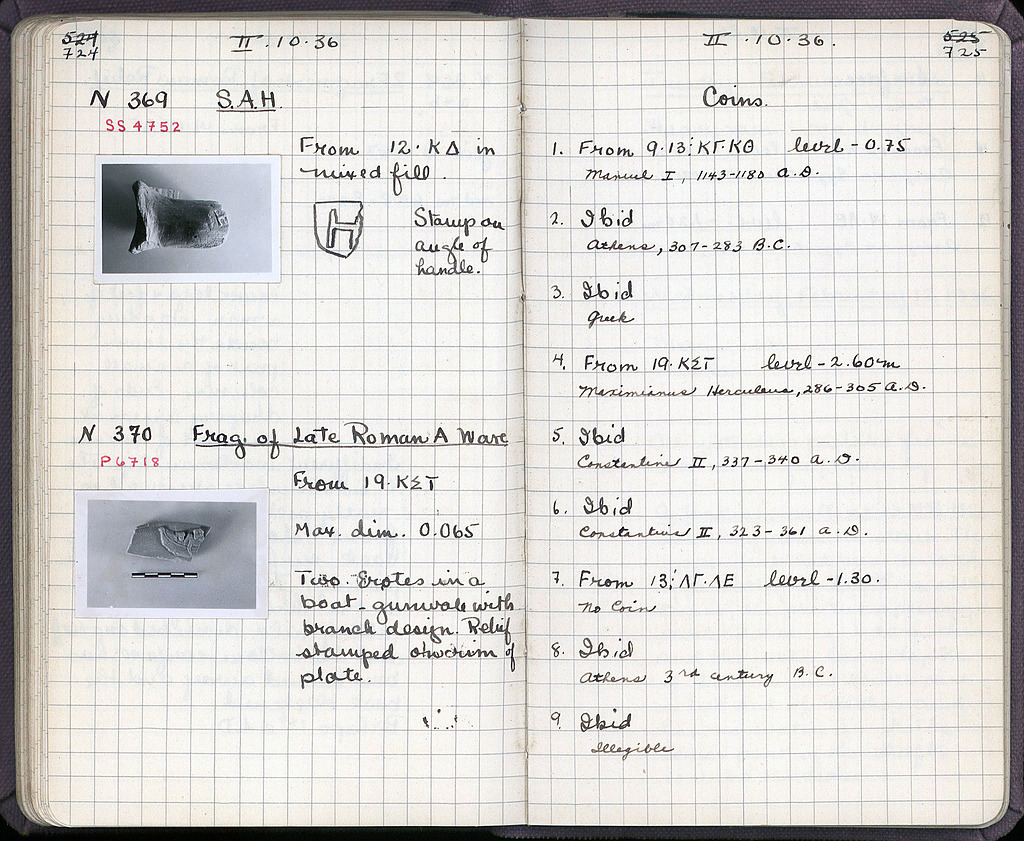 524
724
II · 10 · 36
N 369 S.A.H.
SS 4752
From 12 · ΚΔ in
mixed fill.
H
Stamp on
angle of
handle.
N 370 Frag. of Late Roman A Ware
P 6718
From 19 · ΚΣΤ
Max. dim. 0.065
Two Erotes in a
boat - gunwale with
branch design. Relief
stamped on rim of
plate.
II · 10 · 36.
525
725
Coins.
1. From 9-13; ΚΓ.ΚΘ level - 0.75
Manuel I, 1143-1180 A.D.
2. Ibid
Athens, 307-283 B.C.
3. Ibid
Greek
4. From 19 · ΚΣΤ level - 2.60m
Maximianus Herculeus, 286-305 A.D.
5. Ibid
Constantine II, 337-340 A.D.
6. Ibid
Constantius II, 323-361 A.D.
7. From 13; ΛΓ.ΛΕ level - 1.30.
No Coin
8. Ibid
Athens 3rd century B.C.
9. Ibid
Illegible